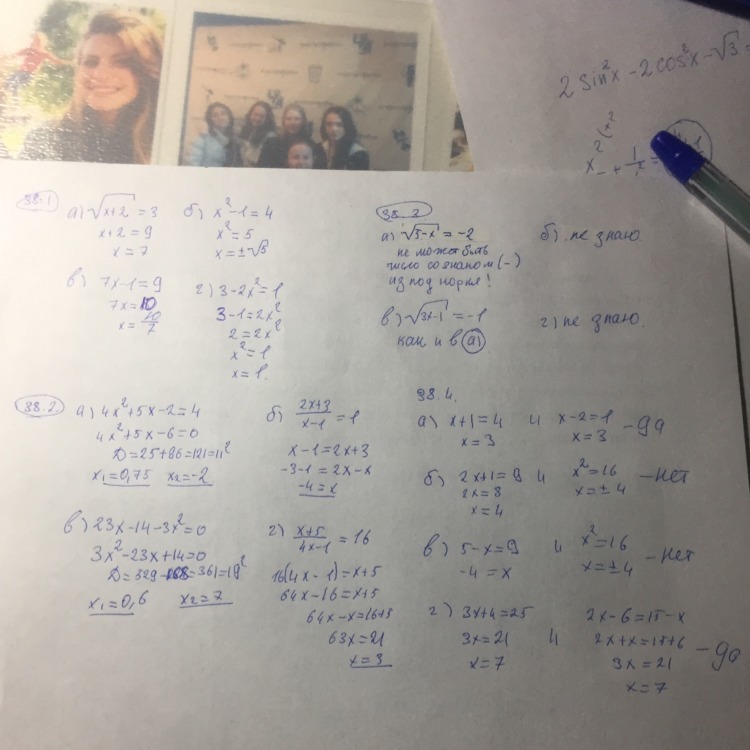 2 sin²x - 2cos²x - √3 =
38.1
а) √x+2 = 3
x+2 = 9
x = 7
б) x² - 1 = 4
x² = 5
x = ±√5
в) 7x-1 = 9
7x = 10
x = 10/7
г) 3-2x² = 1
3-1 = 2x²
2 = 2x²
x² = 1
x = 1.
38.2
а) √5-x = -2
не может быть
число со знаком (-)
из под корня!
б) не знаю.
в) √3x-1 = -1
как и в а)
г) не знаю.
38.2
а) 4x²+5x-2 = 4
4x²+5x-6 = 0
D = 25+96 = 121 = 11²
x₁ = 0,75 x₂ = -2
б) 2x+3/x-1 = 1
x-1 = 2x+3
-3-1 = 2x-x
-4 = x
в) 23x-14-3x² = 0
3x²-23x+14 = 0
D = 529-168 = 361 = 19²
x₁ = 0,6 x₂ = 7
г) x+5/4x-1 = 16
16(4x-1) = x+5
64x-16 = x+5
64x-x = 16+5
63x = 21
x = 3
38.4.
а) x+1 = 4 и x-2 = 1 - да
x = 3 x = 3
б) 2x+1 = 9 и x² = 16 - нет
2x = 8 x = ±4
x = 4
в) 5-x = 9 и x² = 16 - нет
-4 = x x = ±4
г) 3x+4 = 25 2x-6 = 15-x
3x = 21 и 2x+x = 15+6 - да
x = 7 3x = 21
x = 7